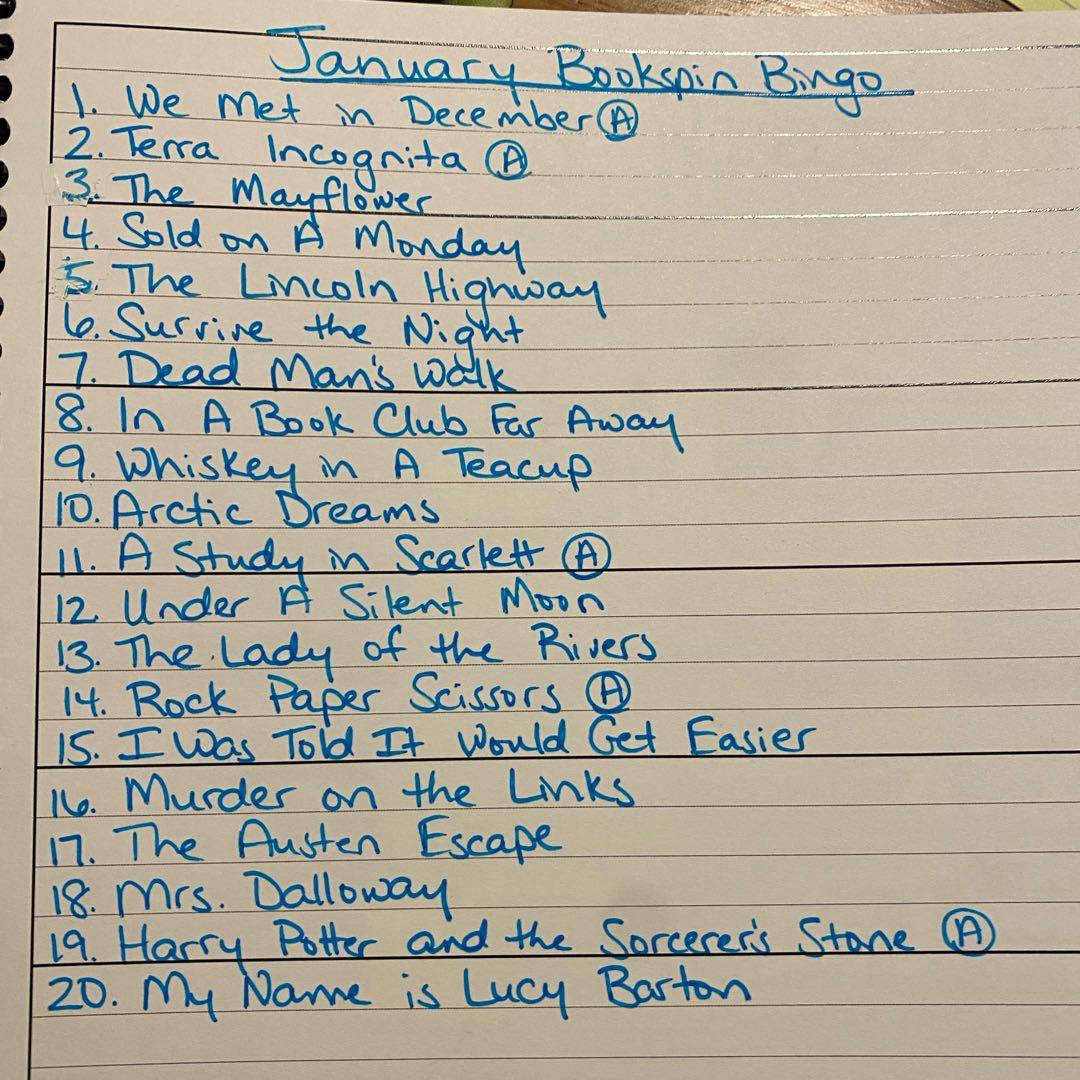 January Bookspin Bingo
1. We Met in December Ⓐ
2. Terra Incognita Ⓐ
3. The Mayflower
4. Sold on A Monday
5. The Lincoln Highway
6. Survive the Night
7. Dead Man's Walk
8. In A Book Club Far Away
9. Whiskey in A Teacup
10. Arctic Dreams
11. A Study in Scarlett Ⓐ
12. Under A Silent Moon
13. The Lady of the Rivers
14. Rock Paper Scissors Ⓐ
15. I Was Told It Would Get Easier
16. Murder on the Links
17. The Austen Escape
18. Mrs. Dalloway
19. Harry Potter and the Sorcerer's Stone Ⓐ
20. My Name is Lucy Barton